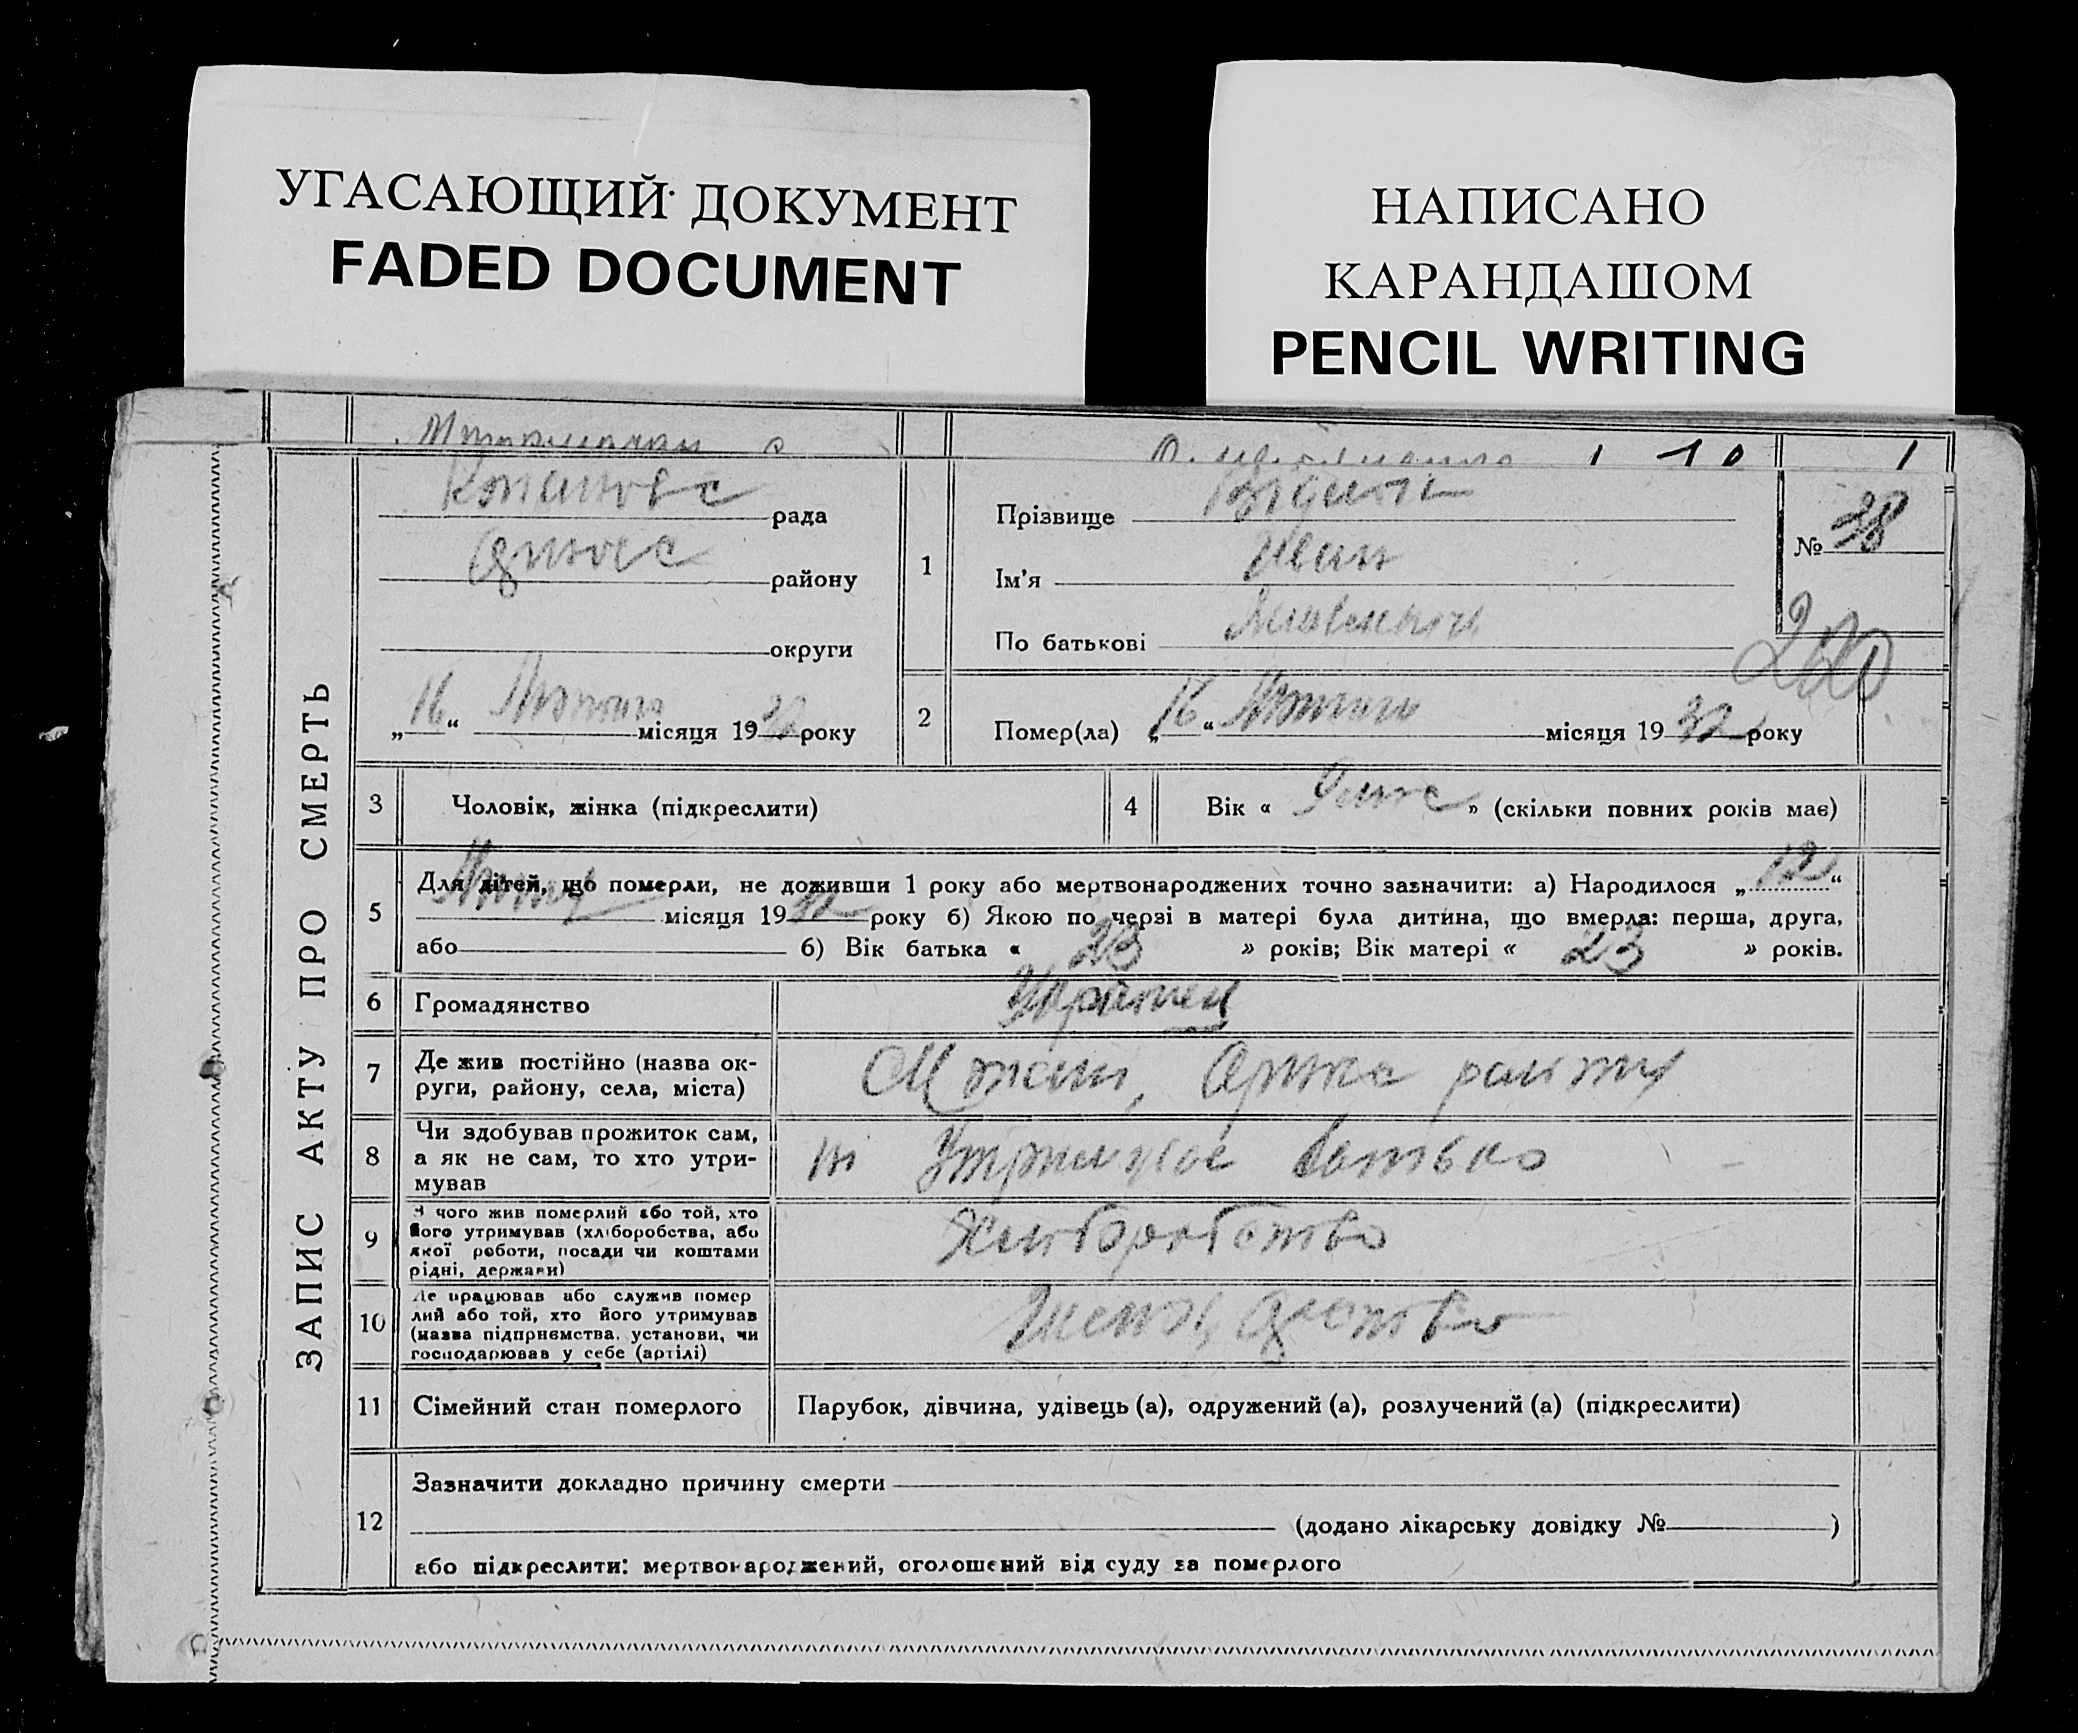 УГАСАЮЩИЙ ДОКУМЕНТ
FADED DOCUMENT
НАПИСАНО
КАРАНДАШОМ
PENCIL WRITING
ЗАПИС АКТУ ПРО СМЕРТЬ
рада
району
округи
„16“ місяця 1932 року
1
Прізвище
Ім'я Иван
По батькові
№ 38
200
2
Помер(ла) „16“ місяця 1932 року
3
Чоловік, жінка (підкреслити)
4
Вік « » (скільки повних років має)
5
Для дітей, що померли, не доживши 1 року або мертвонароджених точно зазначити: а) Народилося „12“
місяця 1932 року б) Якою по черзі в матері була дитина, що вмерла: перша, друга,
або б) Вік батька « 23 » років; Вік матері « 23 » років.
6
Громадянство
Украинец
7
Де жив постійно (назва ок-
руги, району, села, міста)
8
Чи здобував прожиток сам,
а як не сам, то хто утри-
мував
ні Утримував батько
9
З чого жив померлий або той, хто
його утримував (хліборобства, або
якої роботи, посади чи коштами
рідні, держави)
Хліборобство
10
Де працював або служив помер
лий або той, хто його утримував
(назва підприємства, установи, чи
господарював у себе (артілі)
11
Сімейний стан померлого
Парубок, дівчина, удівець (а), одружений (а), розлучений (а) (підкреслити)
12
Зазначити докладно причину смерти
(додано лікарську довідку № )
або підкреслити: мертвонароджений, оголошений від суду за померлого